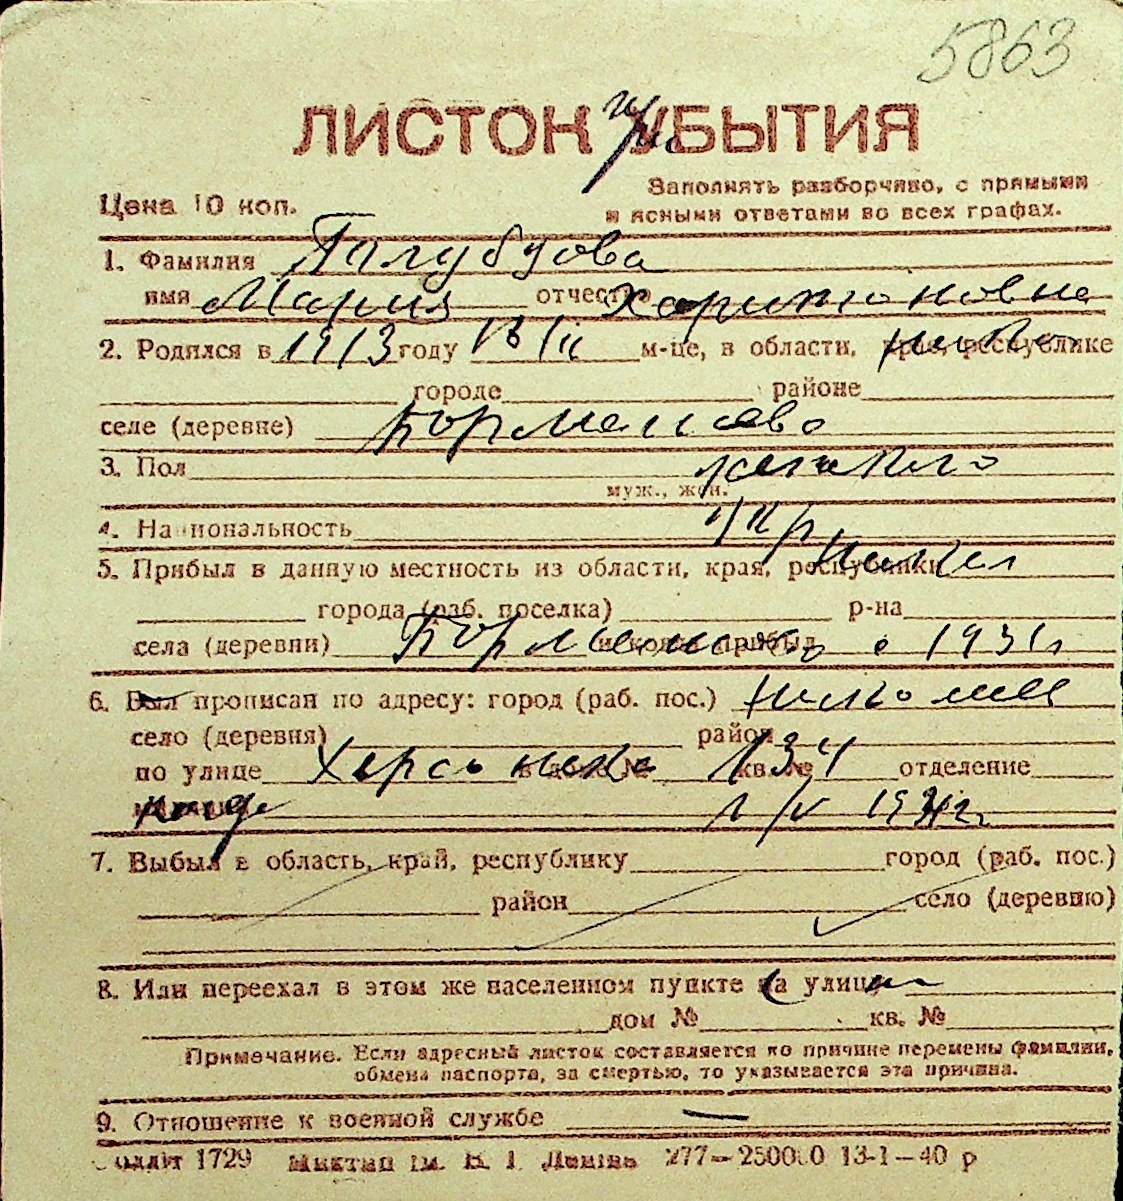 5863
ЛИСТОК УБЫТИЯ
Цена 10 коп.
Заполнять разборчиво, с прямыми
и ясными ответами во всех графах.
1. Фамилия Голубцова
имя Мария отчество Харитоновна
2. Родился в 1913 году м-це, в области, крае, республике
городе районе
селе (деревне)
3. Пол
муж., жен.
4. Национальность укр
5. Прибыл в данную местность из области, края, республики
города (раб. поселка) р-на
села (деревни) и когда прибыл с 1931
6. Был прописан по адресу: город (раб. пос.) Николаев
село (деревня) район
по улице Херсонская в доме № 134 кв. № отделение
милиции
7. Выбыл в область, край, республику город (раб. пос.)
район село (деревню)
8. Или переехал в этом же населенном пункте на улицу
дом № кв. №
Примечание. Если адресный листок составляется по причине перемены фамилии,
обмена паспорта, за смертью, то указывается эта причина.
9. Отношение к военной службе —
1729 277—250000 13-1—40 р